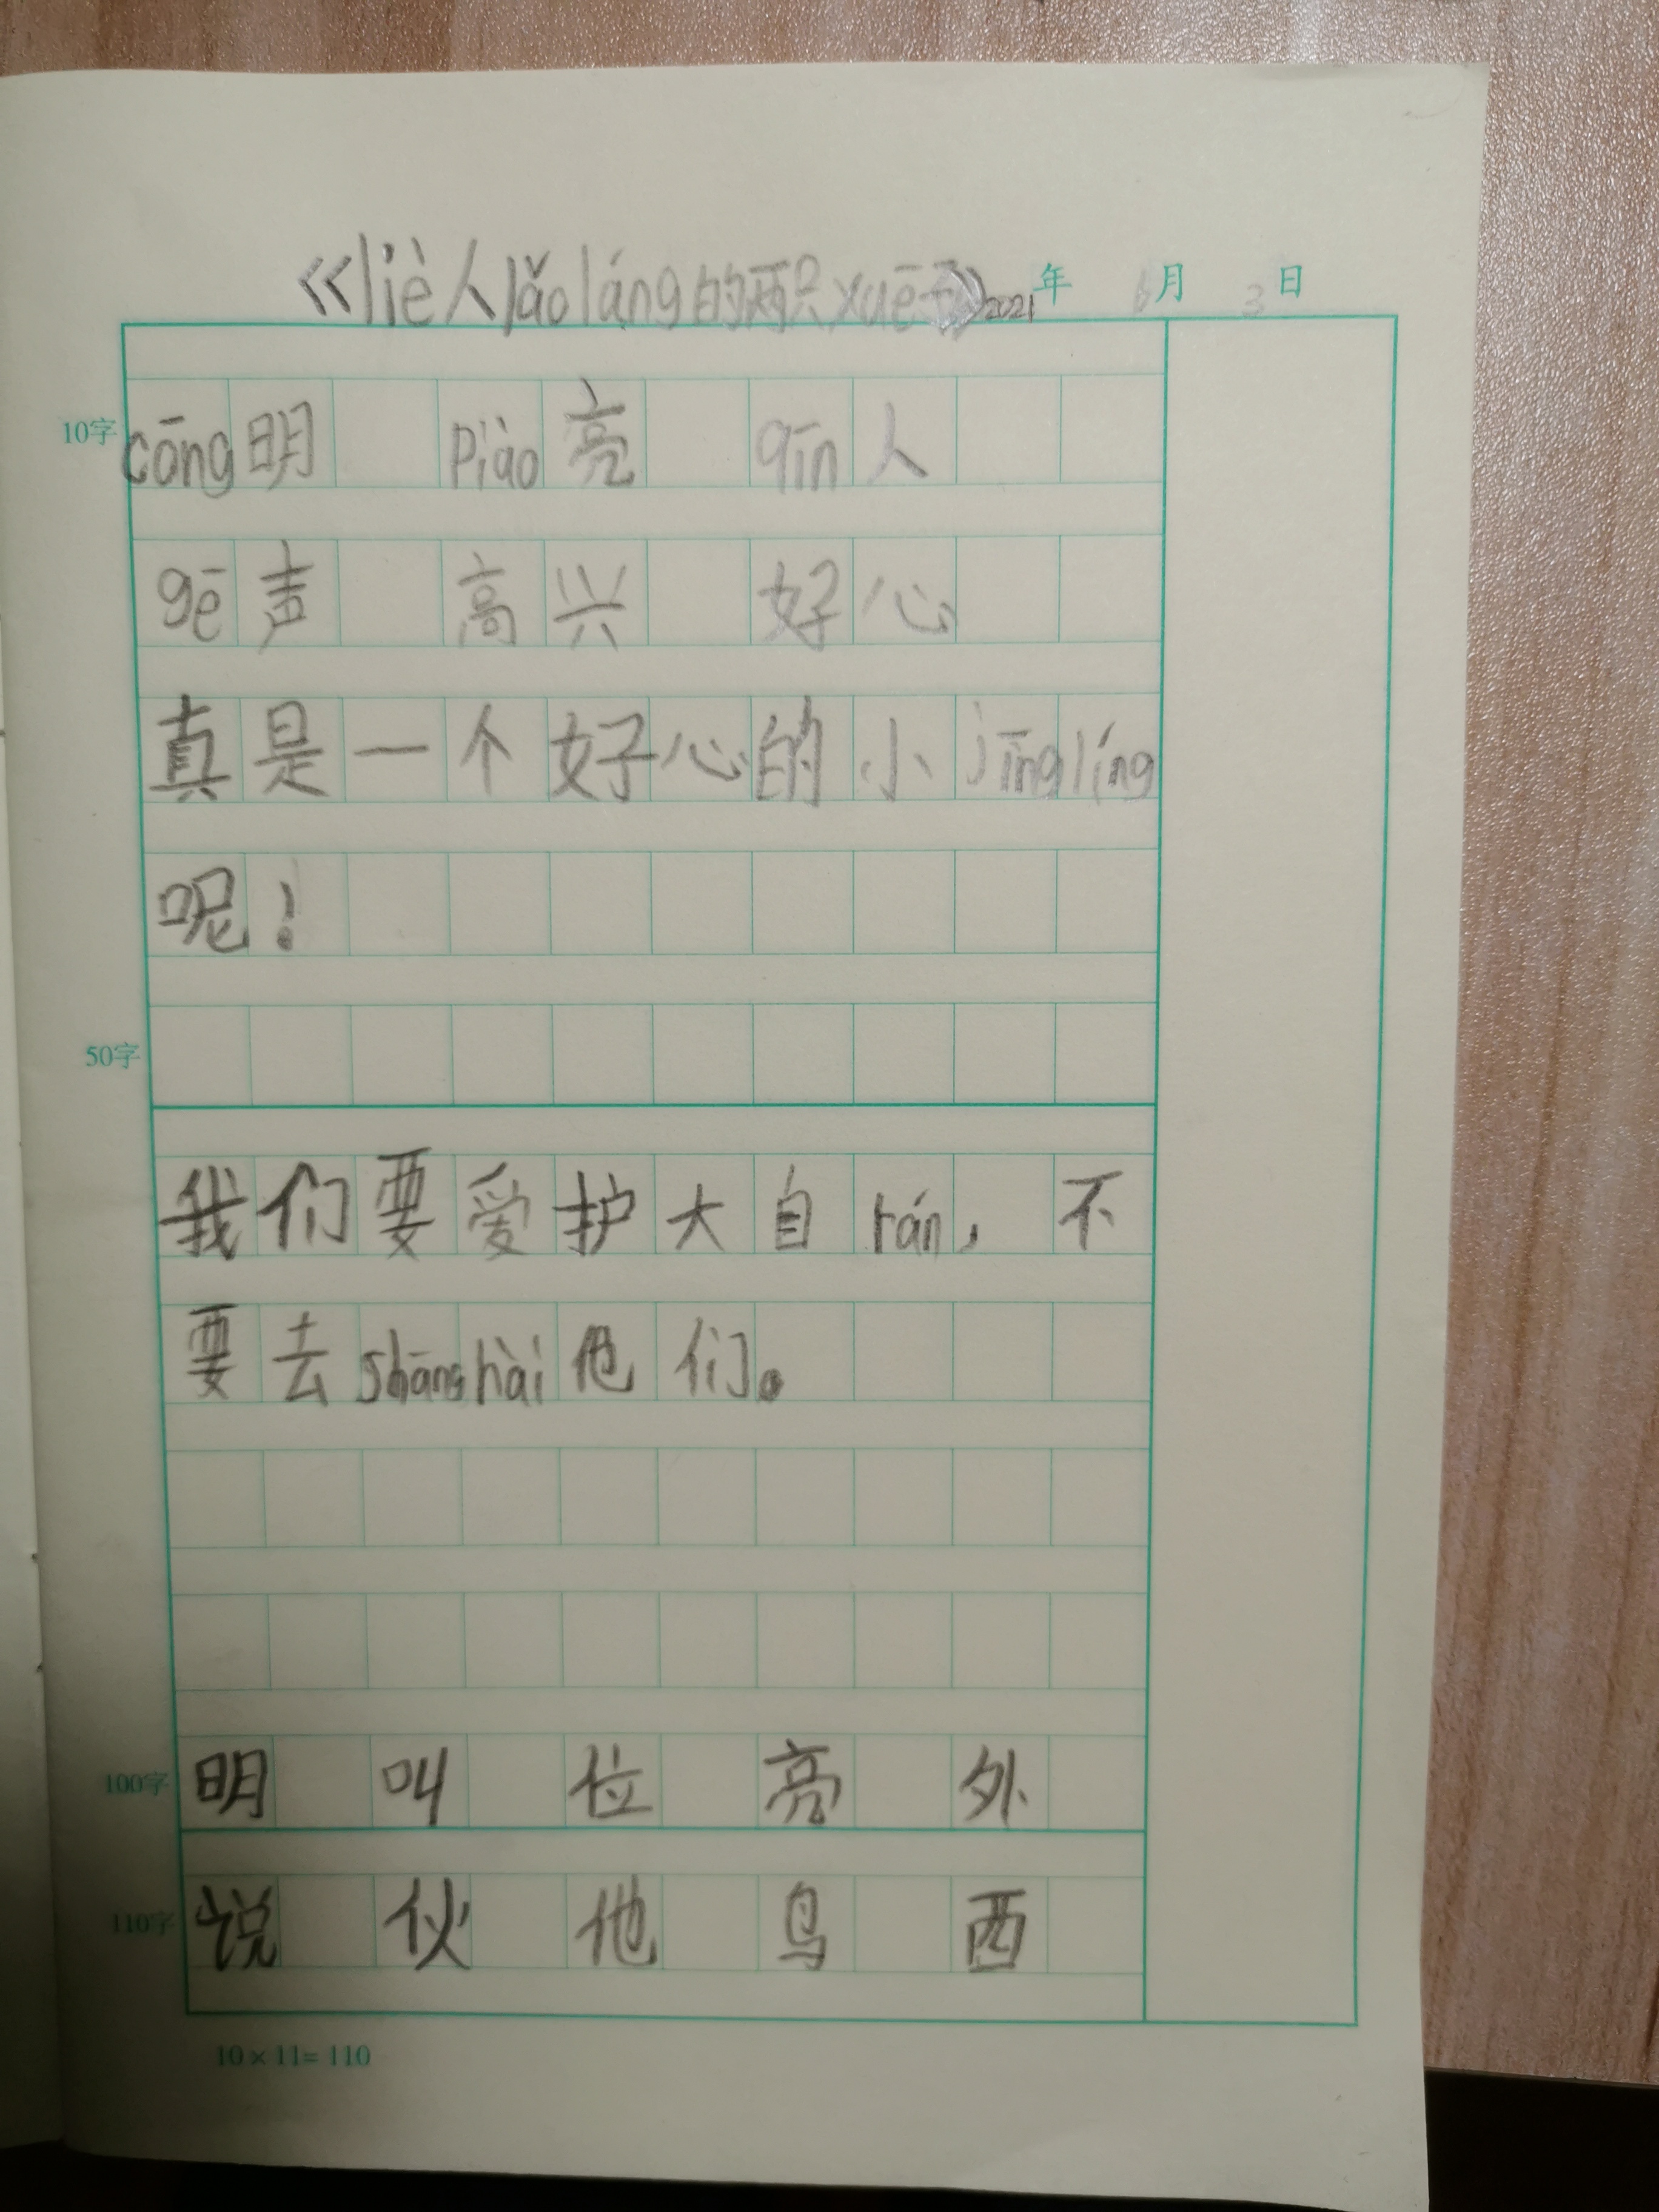 《liè人lǎo láng的两只xuē子》2021年 6月 3日
10字 cōng明 piào亮 qīn人
gē声 高兴 好心
真是一个好心的小jīng líng
呢！
50字
我们要爱护大自rán，不
要去shāng hài他们。
100字 明 叫 位 亮 外
110字 说 伙 他 鸟 西
10×11=110